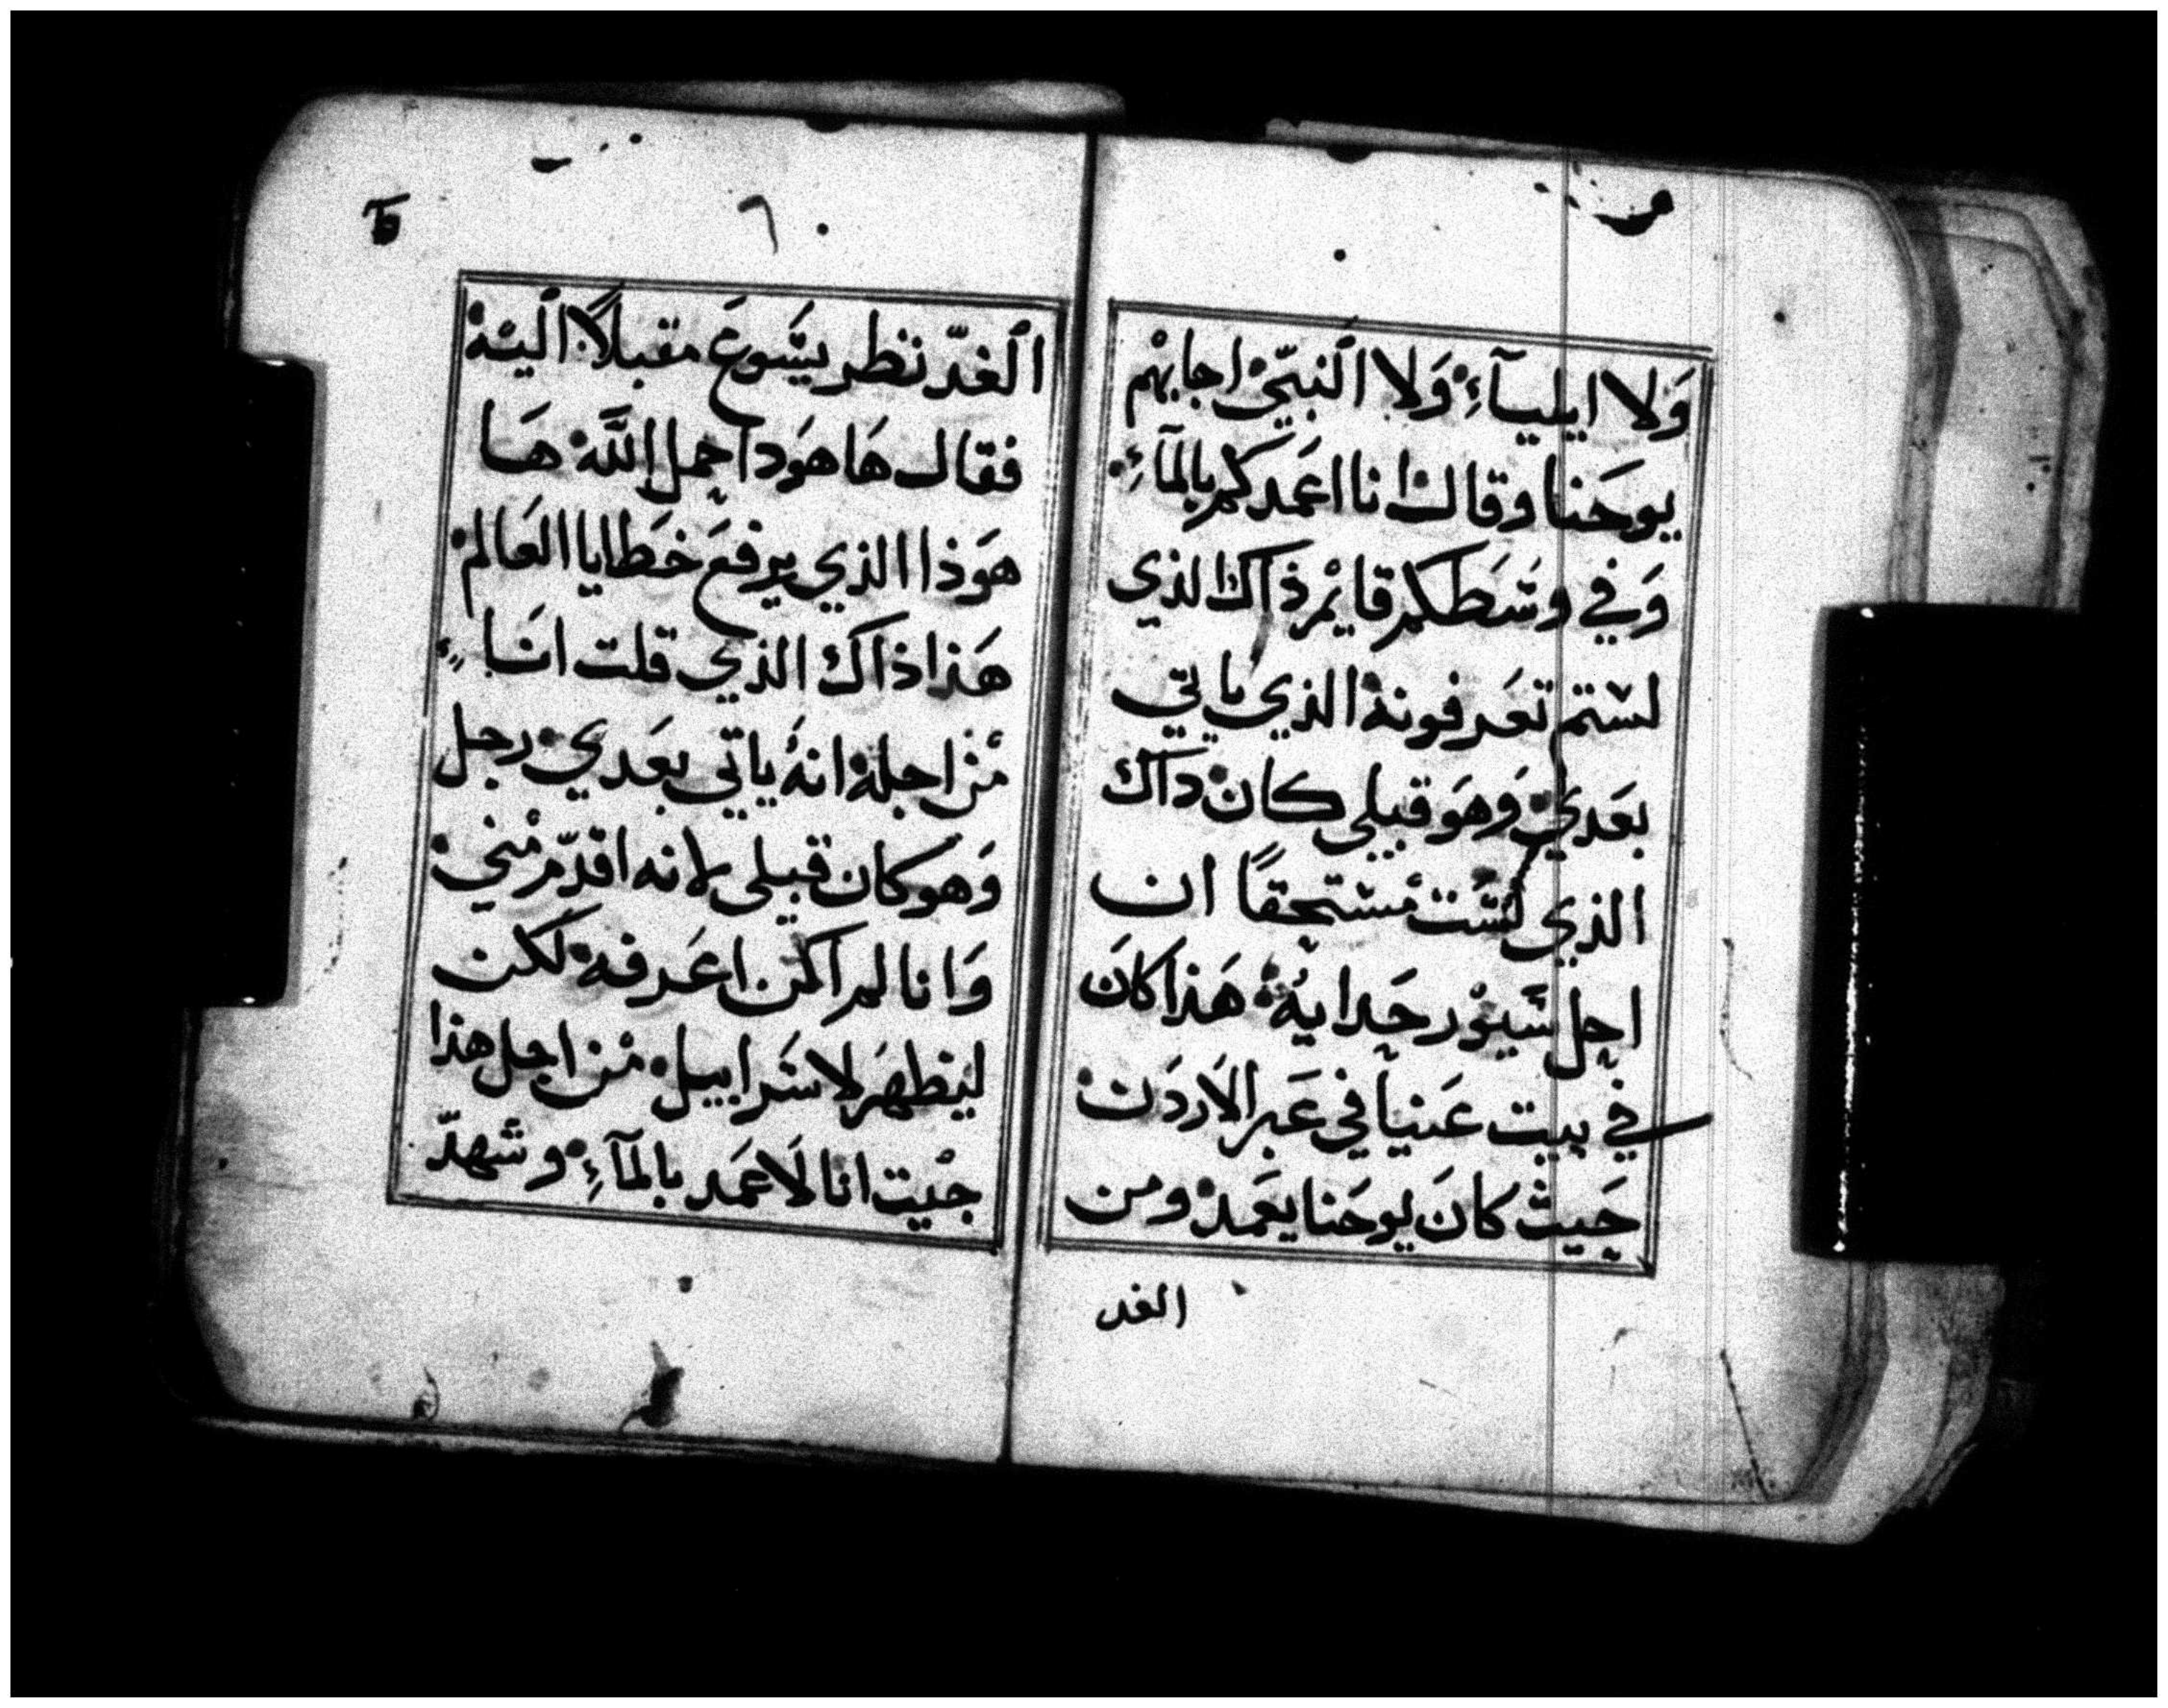 وَلا ايلياۤءِ وَلا اَلنبيّ اجابهْم
يوحَنا وقال انا اعَمدكم بالمآءِ
وَفي وسَطكم قايمْ ذاك الذي
لستم تعَرفونه الذي ياتي
بعَدي وَهوَ قبلي كان داك
الذي لسَت مْستحقًا ان
احل سَيوْر حَدايهُ هَذا كانَ
في بيت عَنيا في عَبر الاَردَن
حَيث كانَ يوحَنا يعَمد ومن
الغد
٦
اَلغدّ نظر يسَوعَ مقبلاً اَليه
فقال هَا هوَدا حمل اللَّه هَا
هوَذا الذي يرفعَ خَطايا العَالم
هَذا ذاك الذي قلت انَا
مْن اجله انهُ ياتي بعَدي رجل
وَهو كان قبلي لانه اقدّم مْني
وَانا لم اكن اعَرفه لكن
ليظهَر لاسَراييل مْن اجل هذا
جيْت انا لاَعمَد بالمآءِ وشهدّ